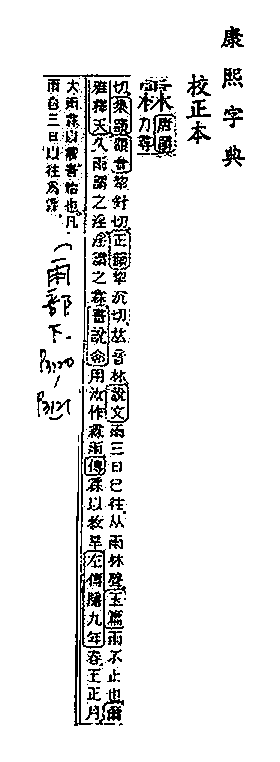 康熙字典
校正本
霖 唐韻力尋
切集韻韻會犂針切正韻犂沉切𠀤音林說文雨三日已往从雨林聲玉篇雨不止也爾
雅釋天久雨謂之淫淫謂之霖書說命用汝作霖雨傳霖以救旱左傳隱九年春王正月
大雨霖以震書始也凡
雨自三日以往爲霖
(雨部下.